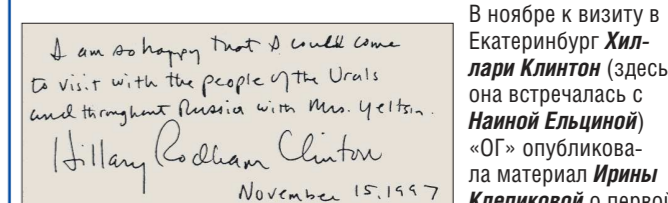 I am so happy that I could come
to visit with the people of the Urals
and throughout Russia with Mrs. Yeltsin.
Hillary Rodham Clinton
November 15, 1997
В ноябре к визиту в
Екатеринбург Хил-
лари Клинтон (здесь
она встречалась с
Наиной Ельциной)
«ОГ» опубликова-
ла материал Ирины
Клепиковой о первой